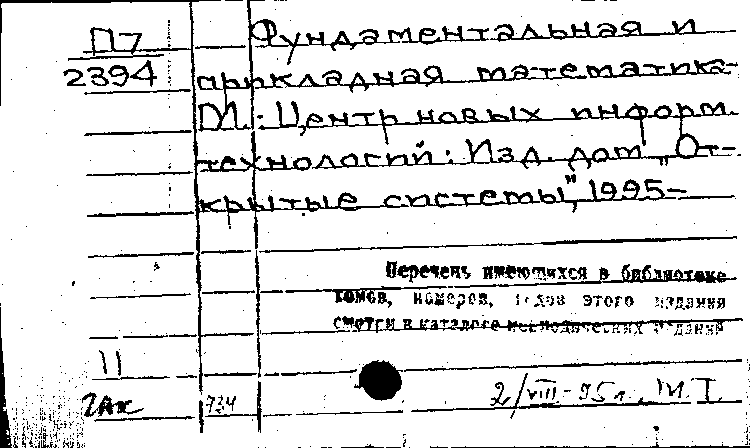 П7
2394
Фундаментальная и
прикладная математика.-
М.: Центр новых информ.
технологий: Изд. дом „От-
крытые системы", 1995-
Перечень имеющихся в библиотеке
томов, номеров, годов этого издания
смотри в каталоге периодических изданий
11
734
2/VIII-95г. М.Т.